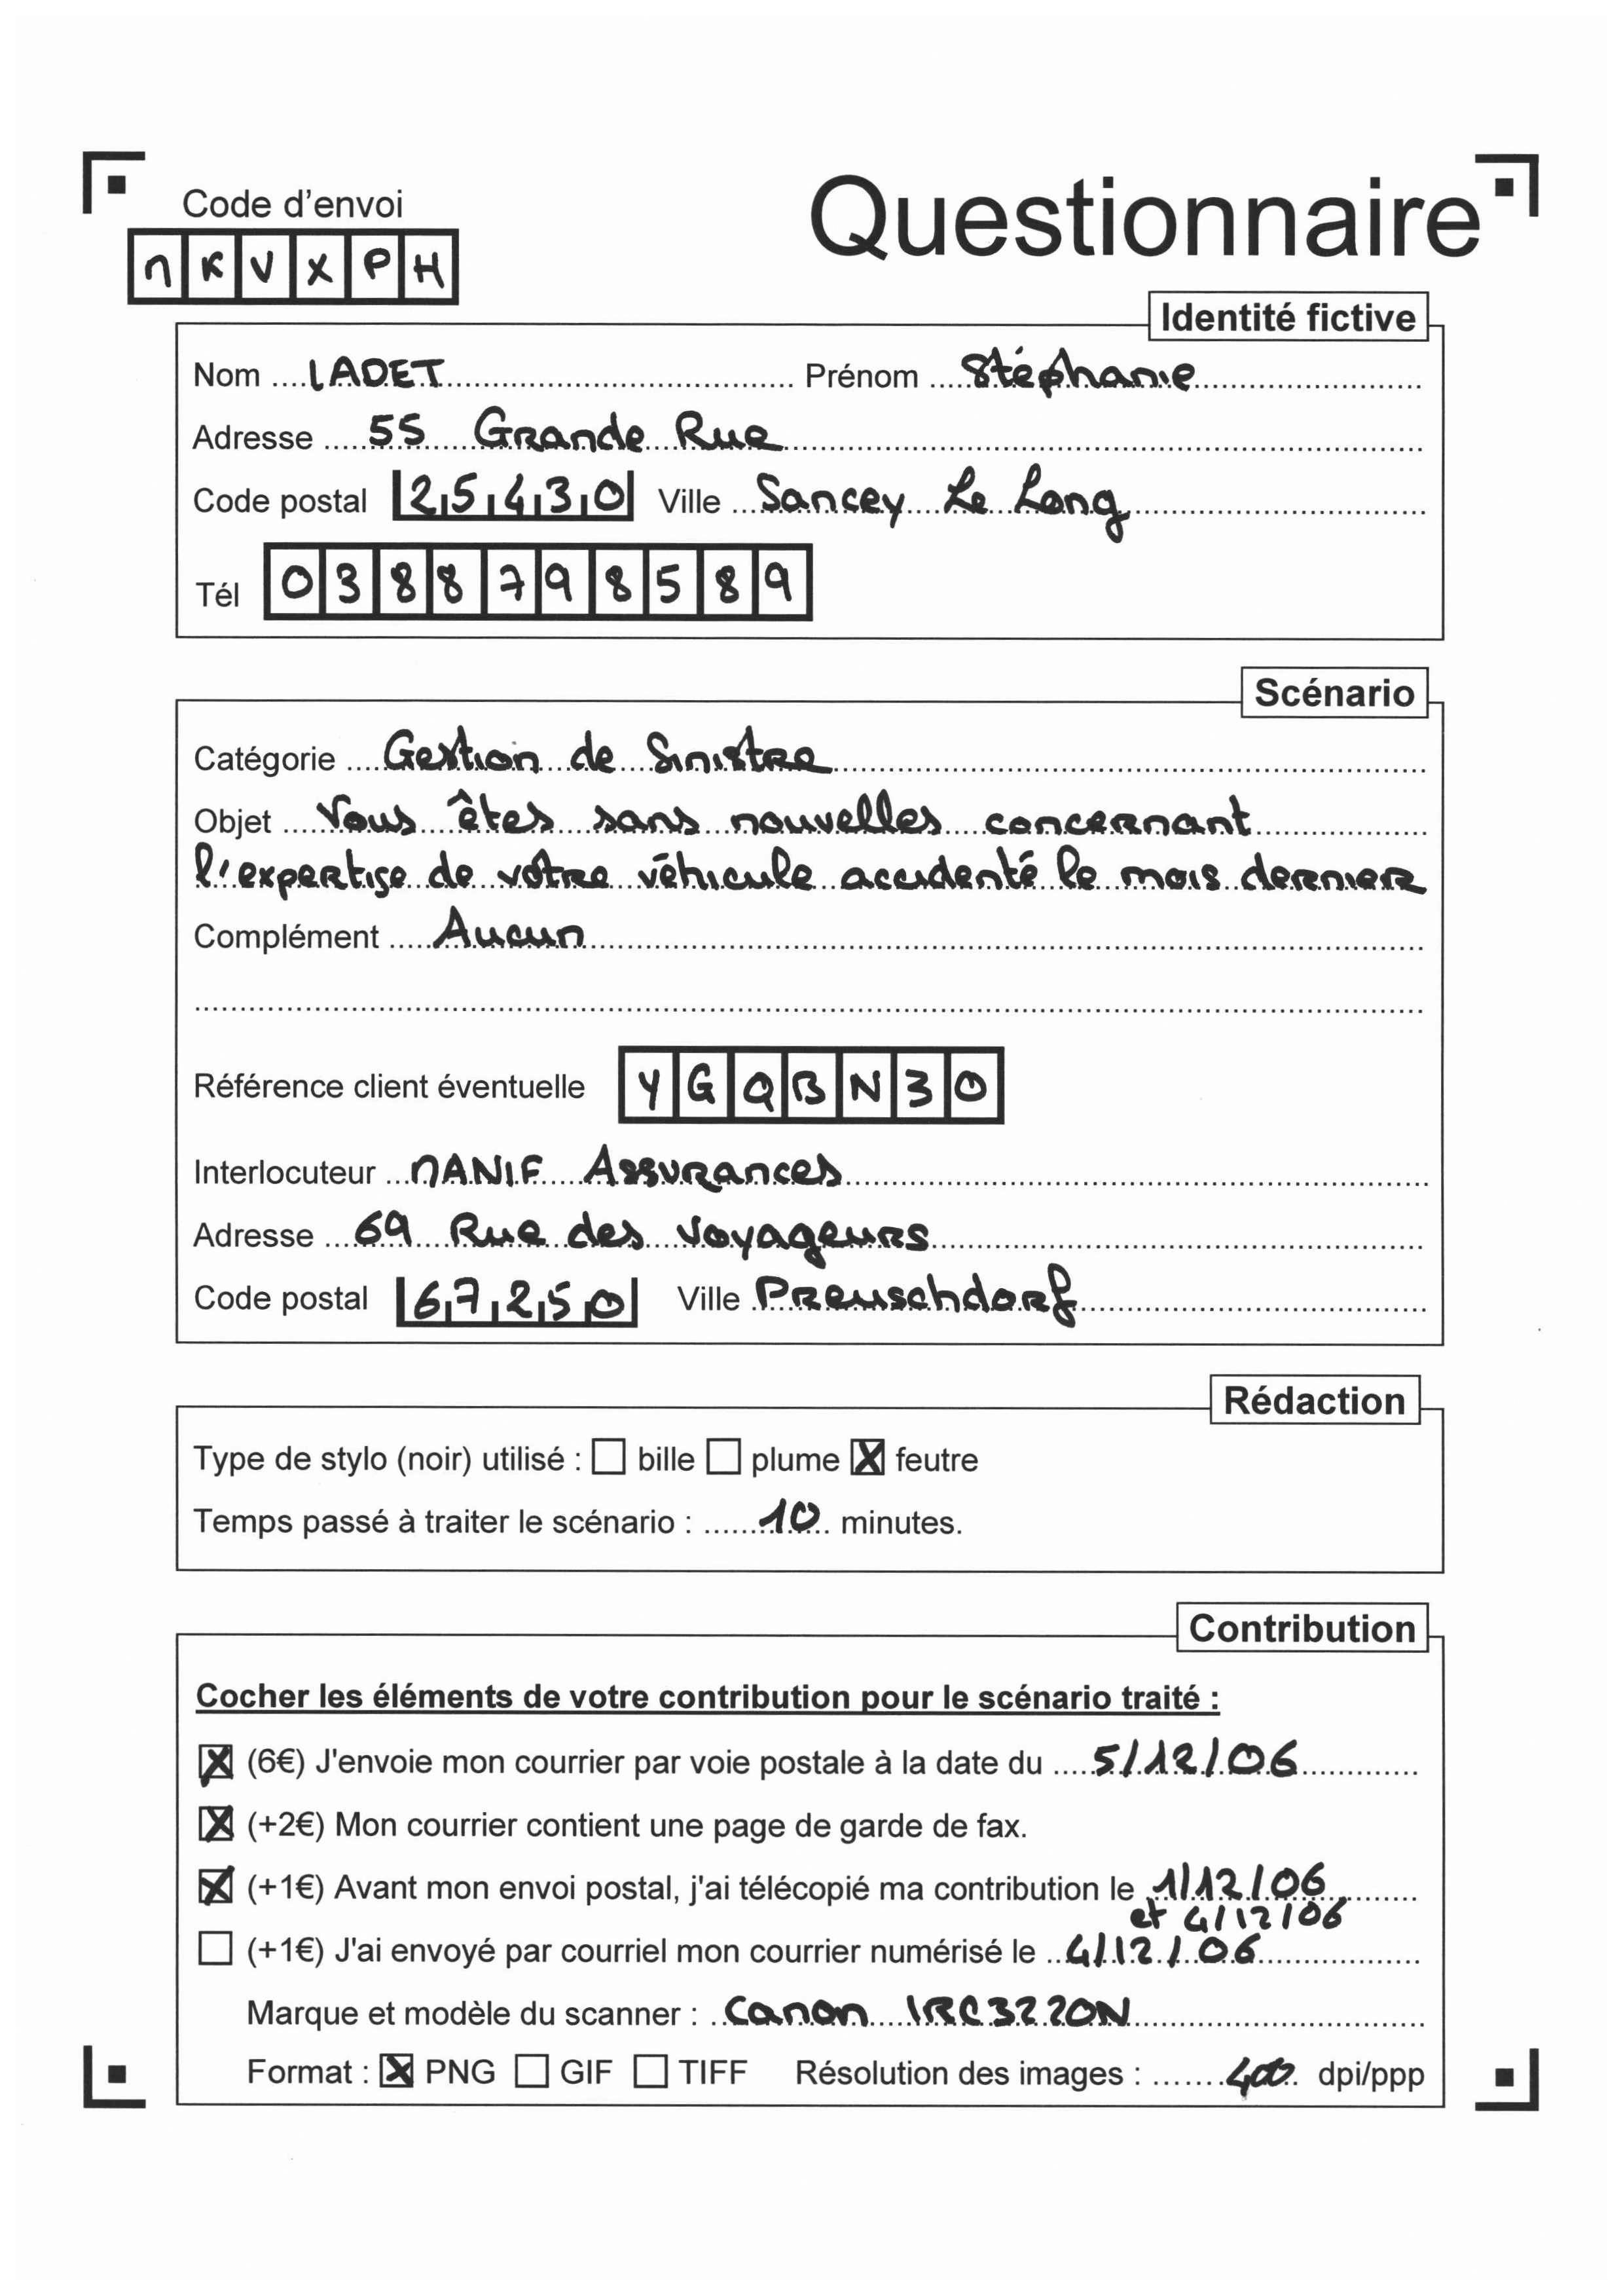 Code d'envoi
Questionnaire
M K V X P H
Identité fictive
Nom LADET Prénom Stéphanie
Adresse 55 Grande Rue
Code postal 25430 Ville Sancey Le Long
Tél 0388798589
Scénario
Catégorie Gestion de Sinistre
Objet Vous êtes sans nouvelles concernant
l'expertise de votre véhicule accidenté le mois dernier
Complément Aucun
Référence client éventuelle YGQBN30
Interlocuteur MANIF Assurances
Adresse 69 Rue des Voyageurs
Code postal 67250 Ville Preuschdorf
Rédaction
Type de stylo (noir) utilisé : ☐ bille ☐ plume ☒ feutre
Temps passé à traiter le scénario : 10 minutes.
Contribution
Cocher les éléments de votre contribution pour le scénario traité :
☒ (6€) J'envoie mon courrier par voie postale à la date du 5/12/06
☒ (+2€) Mon courrier contient une page de garde de fax.
☒ (+1€) Avant mon envoi postal, j'ai télécopié ma contribution le 1/12/06
et 4/12/06
☐ (+1€) J'ai envoyé par courriel mon courrier numérisé le 4/12/06
Marque et modèle du scanner : Canon IRC3220N
Format : ☒ PNG ☐ GIF ☐ TIFF Résolution des images : 400 dpi/ppp